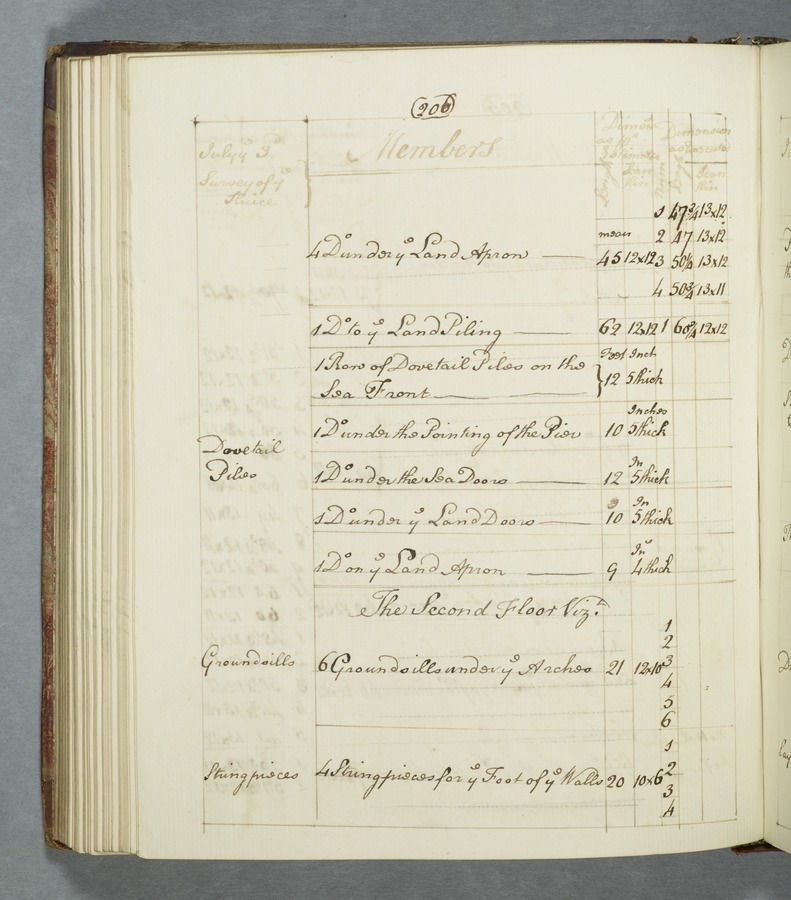 (206)
July yᵉ 3ᵈ
Survey of yᵉ
Sluice
Members
Dimensions
as pr
Estimate
Length
Scan
tlin
Dimension
as Executed
Length
Scan
tlin
1 47¾ 13x12
mean 2 47 13x12
4 Dᵒ under yᵉ Land Apron 45 12x12 3 50¼ 13x12
4 50¾ 13x11
1 Dᵒ to yᵉ Land Piling 62 12x12 1 60¾ 12x12
Feet Inch
1 Row of Dovetail Piles on the
Sea Front 12 5 thick
Inches
1 Dᵒ under the Pointing of the Pier 10 5 thick
Dovetail
Piles
In
1 Dᵒ under the Sea Doors 12 5 thick
In
1 Dᵒ under yᵉ Land Doors 10 5 thick
In
1 Dᵒ on yᵉ Land Apron 9 4 thick
The Second Floor Vizᵗ.
1
2
Groundsills 6 Groundsills under yᵉ Arches 21 12x10 3
4
5
6
1
Stringpieces 4 Stringpieces for yᵉ Foot of yᵉ Walls 20 10x6 2
3
4